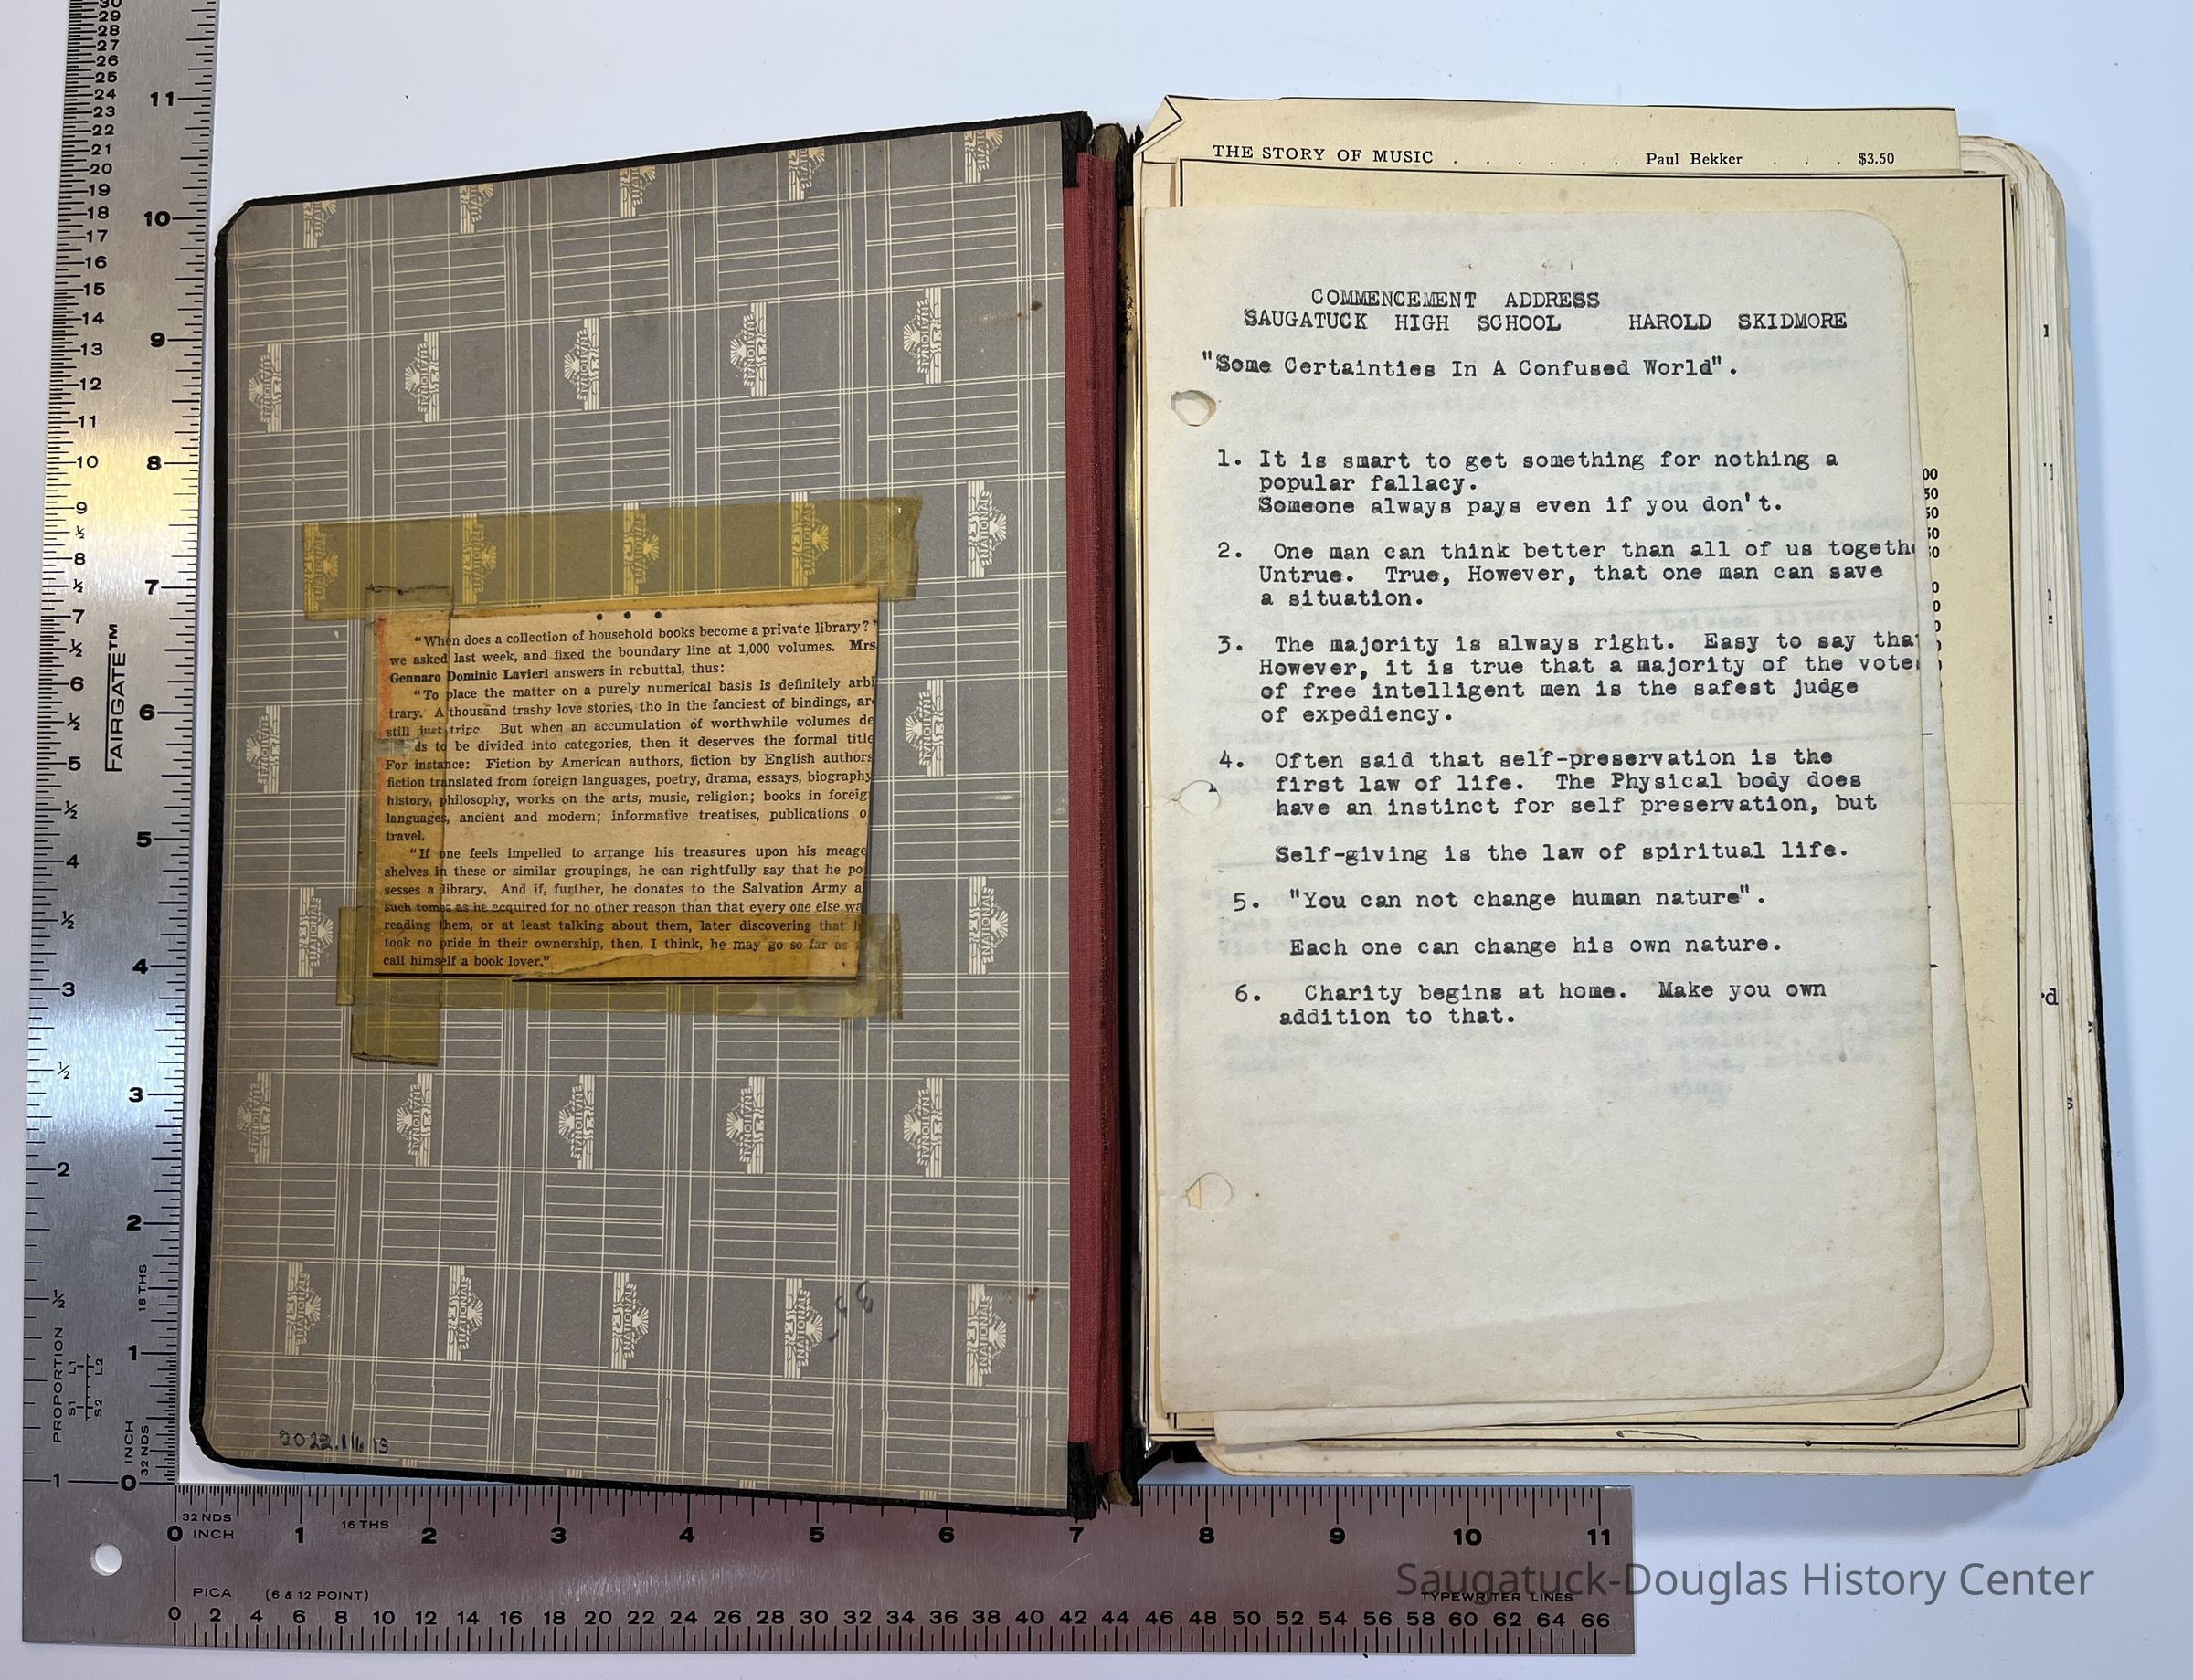 • • •
"When does a collection of household books become a private library?"
we asked last week, and fixed the boundary line at 1,000 volumes. Mrs
Gennaro Dominic Lavieri answers in rebuttal, thus:
"To place the matter on a purely numerical basis is definitely arbi
trary. A thousand trashy love stories, tho in the fanciest of bindings, are
still just tripe. But when an accumulation of worthwhile volumes de
ds to be divided into categories, then it deserves the formal title
For instance: Fiction by American authors, fiction by English authors
fiction translated from foreign languages, poetry, drama, essays, biography
history, philosophy, works on the arts, music, religion; books in foreig
languages, ancient and modern; informative treatises, publications o
travel.
"If one feels impelled to arrange his treasures upon his meage
shelves in these or similar groupings, he can rightfully say that he po
sesses a library. And if, further, he donates to the Salvation Army a
such tomes as he acquired for no other reason than that every one else wa
reading them, or at least talking about them, later discovering that h
took no pride in their ownership, then, I think, he may go so far as
call himself a book lover."
2022.16.13
THE STORY OF MUSIC . . . . . . Paul Bekker . . . $3.50
COMMENCEMENT ADDRESS
SAUGATUCK HIGH SCHOOL HAROLD SKIDMORE
"Some Certainties In A Confused World".
1. It is smart to get something for nothing a
popular fallacy.
Someone always pays even if you don't.
2. One man can think better than all of us togethe
Untrue. True, However, that one man can save
a situation.
3. The majority is always right. Easy to say that
However, it is true that a majority of the votes
of free intelligent men is the safest judge
of expediency.
4. Often said that self-preservation is the
first law of life. The Physical body does
have an instinct for self preservation, but
Self-giving is the law of spiritual life.
5. "You can not change human nature".
Each one can change his own nature.
6. Charity begins at home. Make you own
addition to that.
FAIRGATE™
PROPORTION
S1 L1
S2 L2
INCH
32 NDS
16 THS
11
10
9
8
7
6
5
4
3
2
1
0
32 NDS
INCH
16 THS
0 1 2 3 4 5 6 7 8 9 10 11
PICA (6 & 12 POINT) TYPEWRITER LINES
0 2 4 6 8 10 12 14 16 18 20 22 24 26 28 30 32 34 36 38 40 42 44 46 48 50 52 54 56 58 60 62 64 66
Saugatuck-Douglas History Center